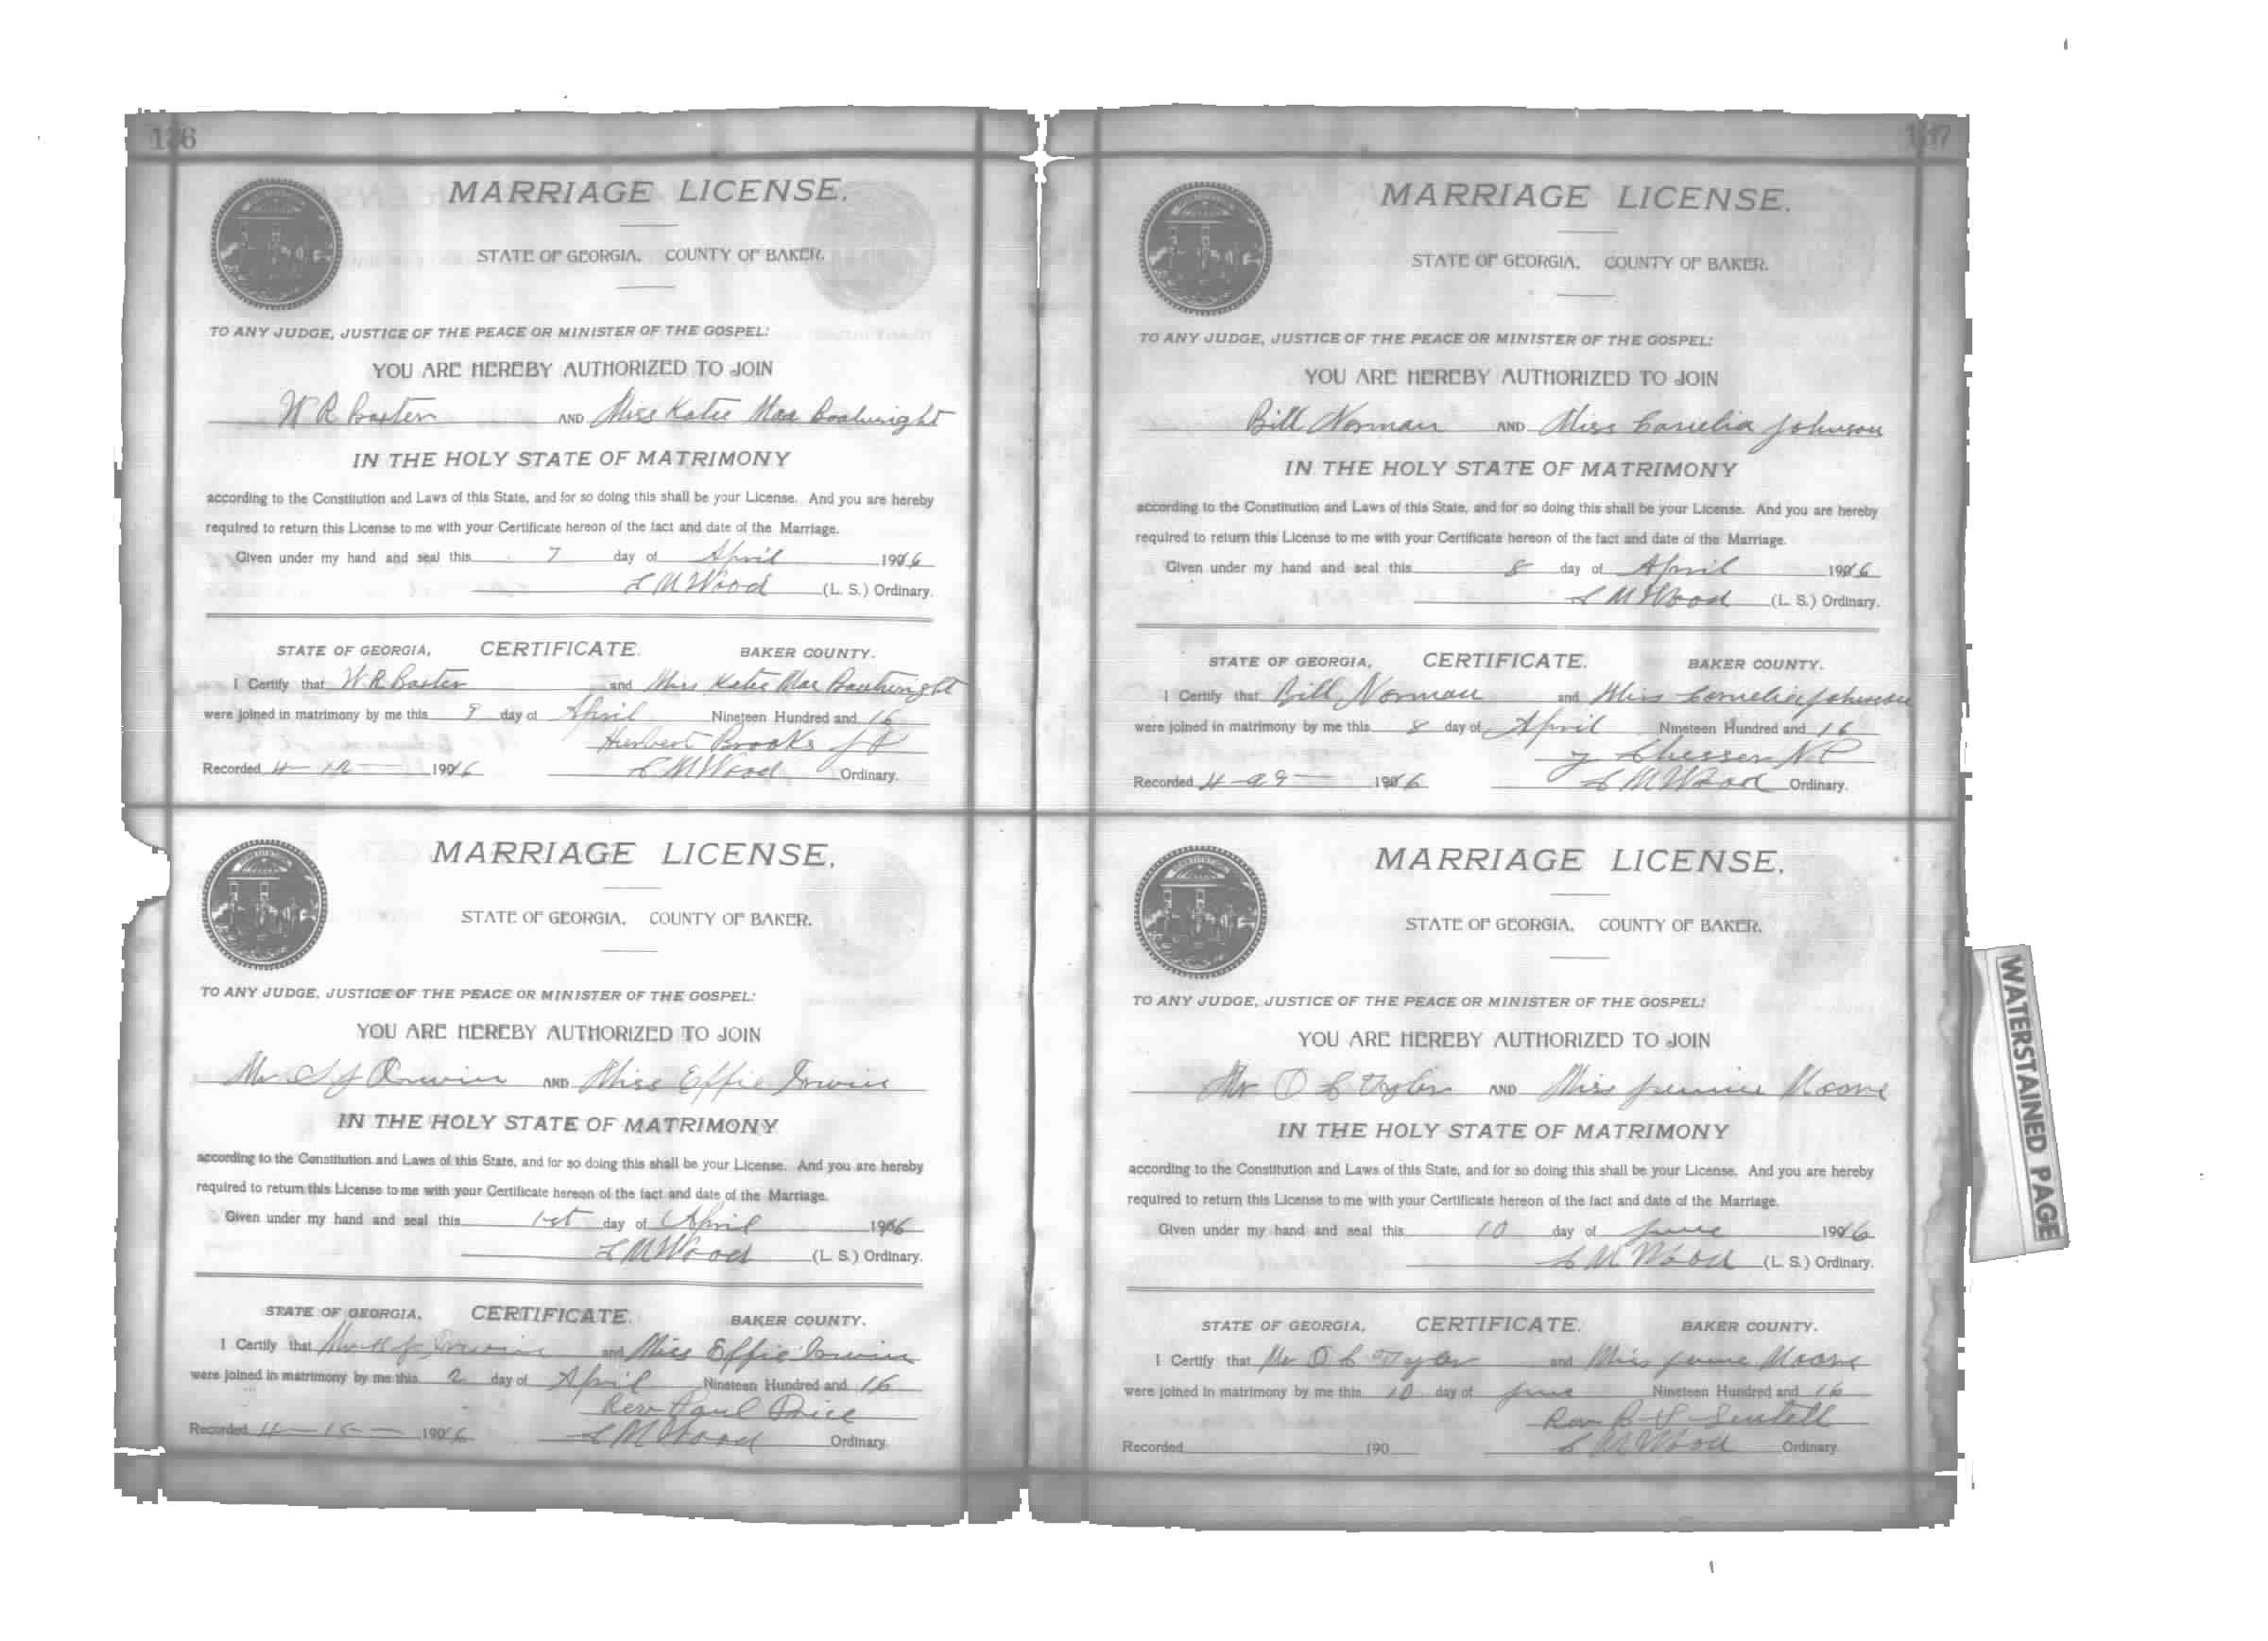 136
MARRIAGE LICENSE.
STATE OF GEORGIA. COUNTY OF BAKER.
TO ANY JUDGE, JUSTICE OF THE PEACE OR MINISTER OF THE GOSPEL:
YOU ARE HEREBY AUTHORIZED TO JOIN
W R Baxter AND Miss Katie Mae Boatwright
IN THE HOLY STATE OF MATRIMONY
according to the Constitution and Laws of this State, and for so doing this shall be your License. And you are hereby
required to return this License to me with your Certificate hereon of the fact and date of the Marriage.
Given under my hand and seal this 7 day of April 1916
L M Wood (L. S.) Ordinary.
STATE OF GEORGIA, CERTIFICATE. BAKER COUNTY.
I Certify that W. R Baxter and Miss Katie Mae Boatwright
were joined in matrimony by me this 9 day of April Nineteen Hundred and 16
Herbert Brooks J P
Recorded 4-12 1916 L M Wood Ordinary.
MARRIAGE LICENSE.
STATE OF GEORGIA. COUNTY OF BAKER.
TO ANY JUDGE, JUSTICE OF THE PEACE OR MINISTER OF THE GOSPEL:
YOU ARE HEREBY AUTHORIZED TO JOIN
Mr J Irwin AND Miss Effie Irwin
IN THE HOLY STATE OF MATRIMONY
according to the Constitution and Laws of this State, and for so doing this shall be your License. And you are hereby
required to return this License to me with your Certificate hereon of the fact and date of the Marriage.
Given under my hand and seal this 1st day of April 1916
L M Wood (L. S.) Ordinary.
STATE OF GEORGIA, CERTIFICATE. BAKER COUNTY.
I Certify that Mr J Irwin and Miss Effie Irwin
were joined in matrimony by me this 2 day of April Nineteen Hundred and 16
Rev Paul Price
Recorded 4-15- 1916 L M Wood Ordinary.
137
MARRIAGE LICENSE.
STATE OF GEORGIA. COUNTY OF BAKER.
TO ANY JUDGE, JUSTICE OF THE PEACE OR MINISTER OF THE GOSPEL:
YOU ARE HEREBY AUTHORIZED TO JOIN
Bill Norman AND Miss Cornelia Johnson
IN THE HOLY STATE OF MATRIMONY
according to the Constitution and Laws of this State, and for so doing this shall be your License. And you are hereby
required to return this License to me with your Certificate hereon of the fact and date of the Marriage.
Given under my hand and seal this 8 day of April 1916
L M Wood (L. S.) Ordinary.
STATE OF GEORGIA, CERTIFICATE. BAKER COUNTY.
I Certify that Bill Norman and Miss Cornelia Johnson
were joined in matrimony by me this 8 day of April Nineteen Hundred and 16
Chesser N. P
Recorded 4-29- 1916 L M Wood Ordinary.
MARRIAGE LICENSE.
STATE OF GEORGIA. COUNTY OF BAKER.
TO ANY JUDGE, JUSTICE OF THE PEACE OR MINISTER OF THE GOSPEL:
YOU ARE HEREBY AUTHORIZED TO JOIN
Mr O L Tyler AND Miss Moore
IN THE HOLY STATE OF MATRIMONY
according to the Constitution and Laws of this State, and for so doing this shall be your License. And you are hereby
required to return this License to me with your Certificate hereon of the fact and date of the Marriage.
Given under my hand and seal this 10 day of June 1916
L M Wood (L. S.) Ordinary.
STATE OF GEORGIA, CERTIFICATE. BAKER COUNTY.
I Certify that Mr O L Tyler and Miss Moore
were joined in matrimony by me this 10 day of June Nineteen Hundred and 16
Rev Sentell
Recorded 190 L M Wood Ordinary.
WATERSTAINED PAGE